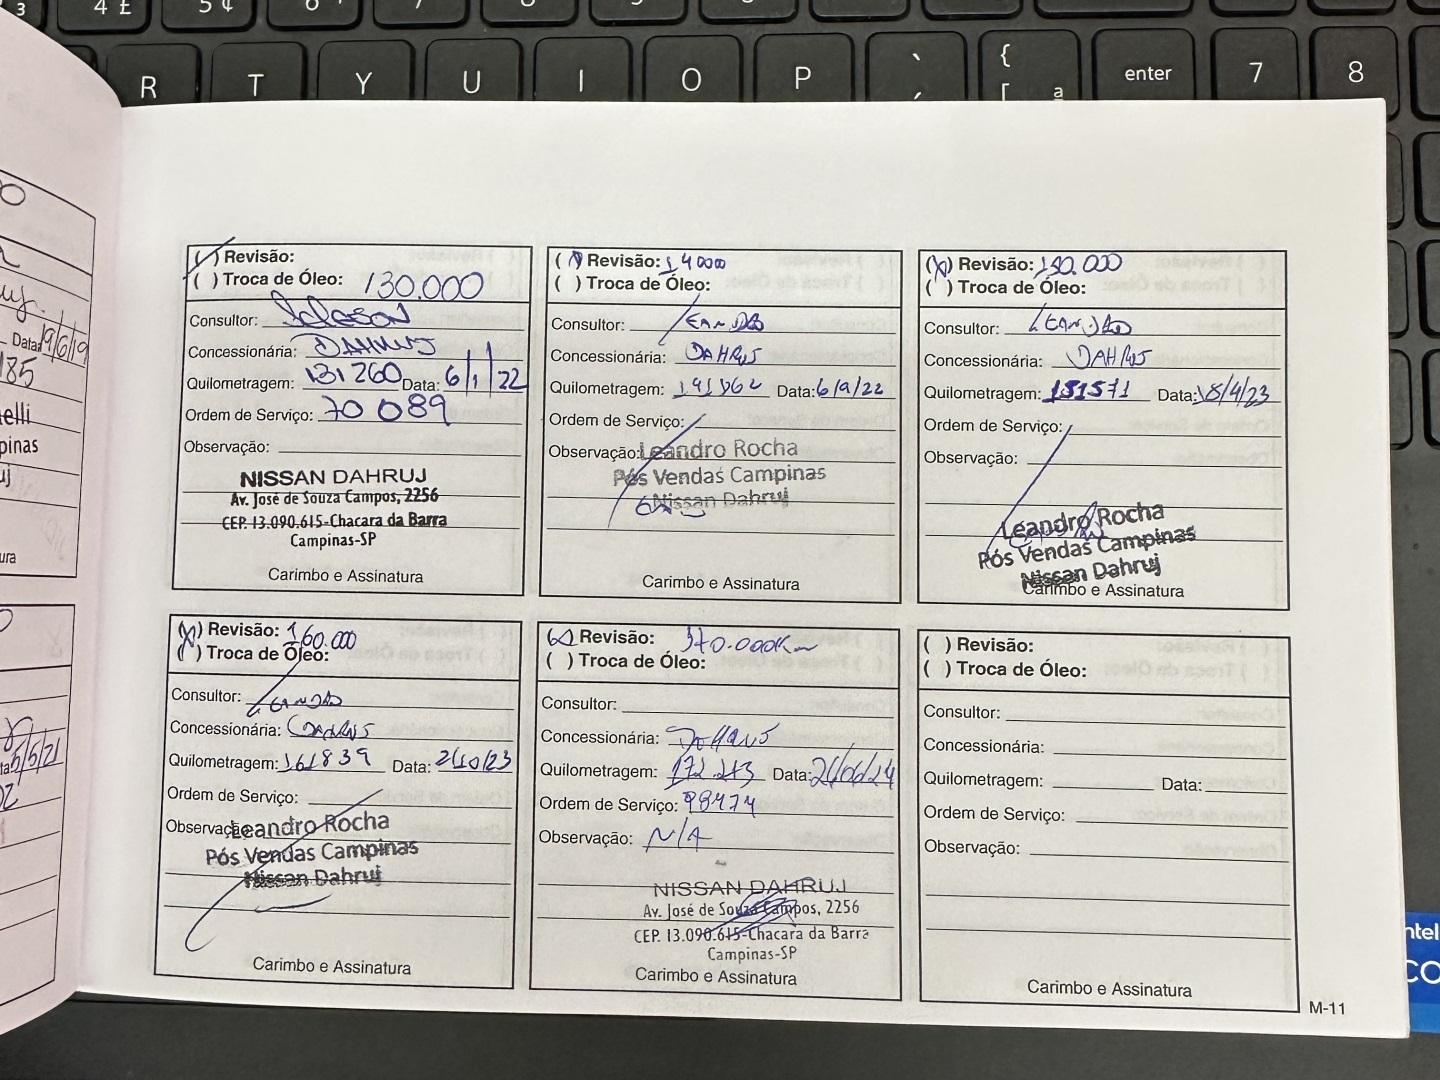 4 £
5 ¢
6
7
8
R T Y U I O P
{
[
ª
enter
7
8
Data: 19/6/19
185
elli
pinas
uj
ura
5/5/21
( ) Revisão:
( ) Troca de Óleo: 130.000
Consultor:
Concessionária: DAHRUJ
Quilometragem: 131260 Data: 6/1/22
Ordem de Serviço: 70089
Observação:
NISSAN DAHRUJ
Av. José de Souza Campos, 2256
CEP. 13.090.615-Chacara da Barra
Campinas-SP
Carimbo e Assinatura
( ) Revisão: 140000
( ) Troca de Óleo:
Consultor: LEANDRO
Concessionária: DAHRUJ
Quilometragem: 141862 Data: 6/9/22
Ordem de Serviço:
Observação:
Leandro Rocha
Pós Vendas Campinas
Nissan Dahruj
Carimbo e Assinatura
(X) Revisão: 150.000
( ) Troca de Óleo:
Consultor: LEANDRO
Concessionária: DAHRUJ
Quilometragem: 151571 Data: 18/4/23
Ordem de Serviço:
Observação:
Leandro Rocha
Pós Vendas Campinas
Nissan Dahruj
Carimbo e Assinatura
(X) Revisão: 160.000
( ) Troca de Óleo:
Consultor: LEANDRO
Concessionária: DAHRUJ
Quilometragem: 161839 Data: 2/10/23
Ordem de Serviço:
Observação:
Leandro Rocha
Pós Vendas Campinas
Nissan Dahruj
Carimbo e Assinatura
(X) Revisão: 170.000Km
( ) Troca de Óleo:
Consultor:
Concessionária: DAHRUJ
Quilometragem: 172.213 Data: 21/06/24
Ordem de Serviço: 98474
Observação: N/A
NISSAN DAHRUJ
Av. José de Souza Campos, 2256
CEP. 13.090.615-Chacara da Barra
Campinas-SP
Carimbo e Assinatura
( ) Revisão:
( ) Troca de Óleo:
Consultor:
Concessionária:
Quilometragem: Data:
Ordem de Serviço:
Observação:
Carimbo e Assinatura
M-11
ntel
CO